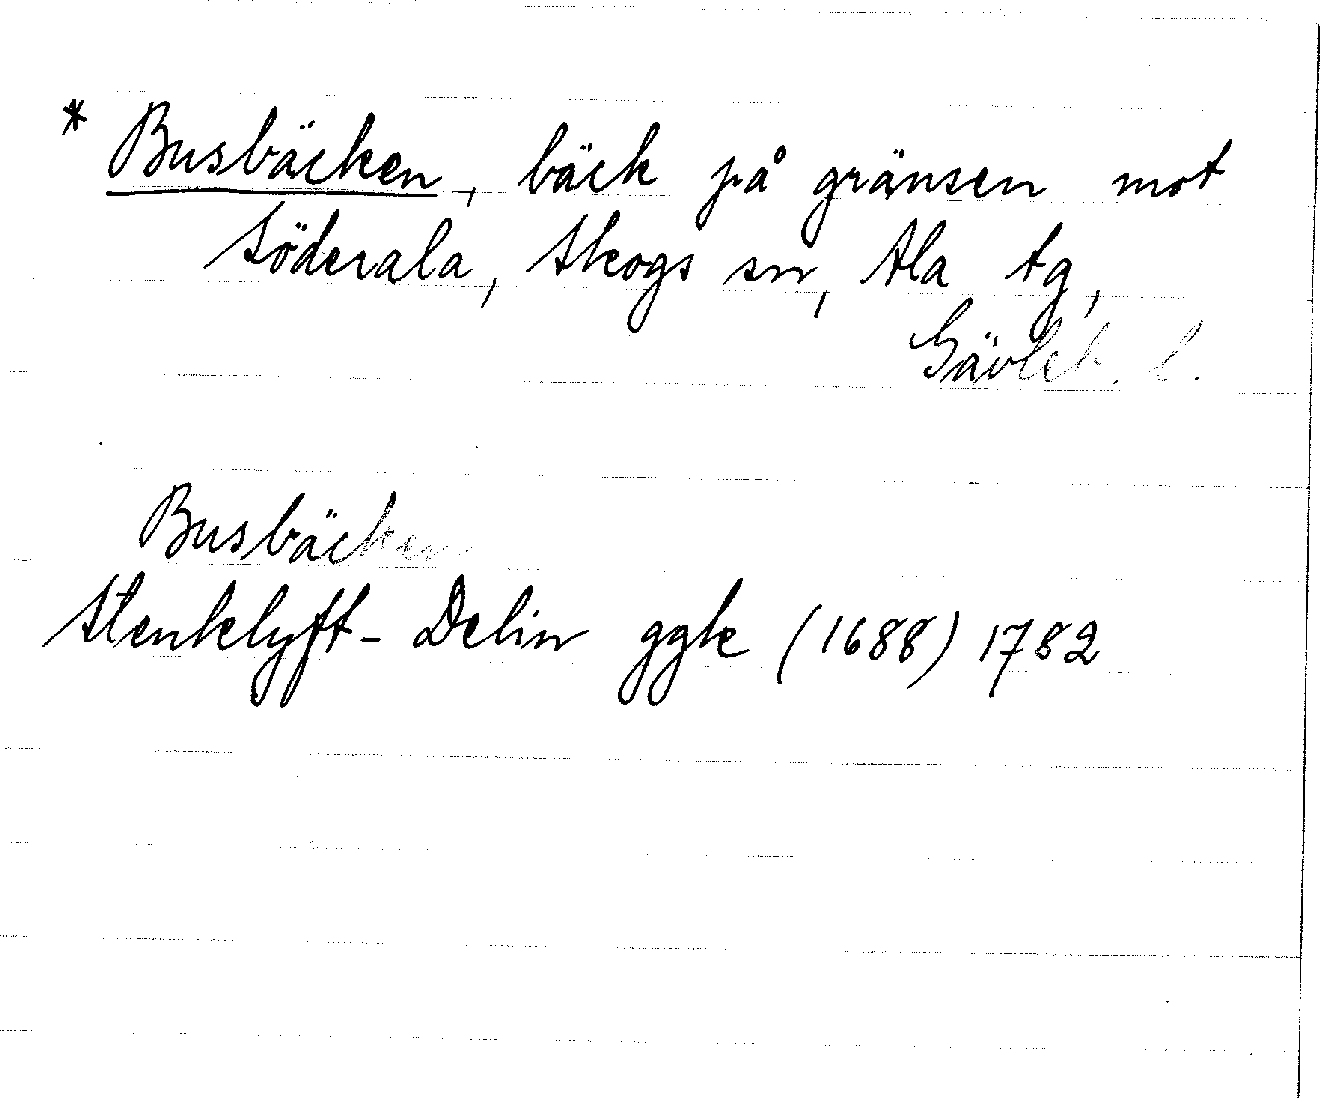 * Busbäcken, bäck på gränsen mot
Söderala, Skogs sn, Ala tg,
Gävleb. l.
Busbäcken
Stenklyft- Delin ggk (1688) 1782